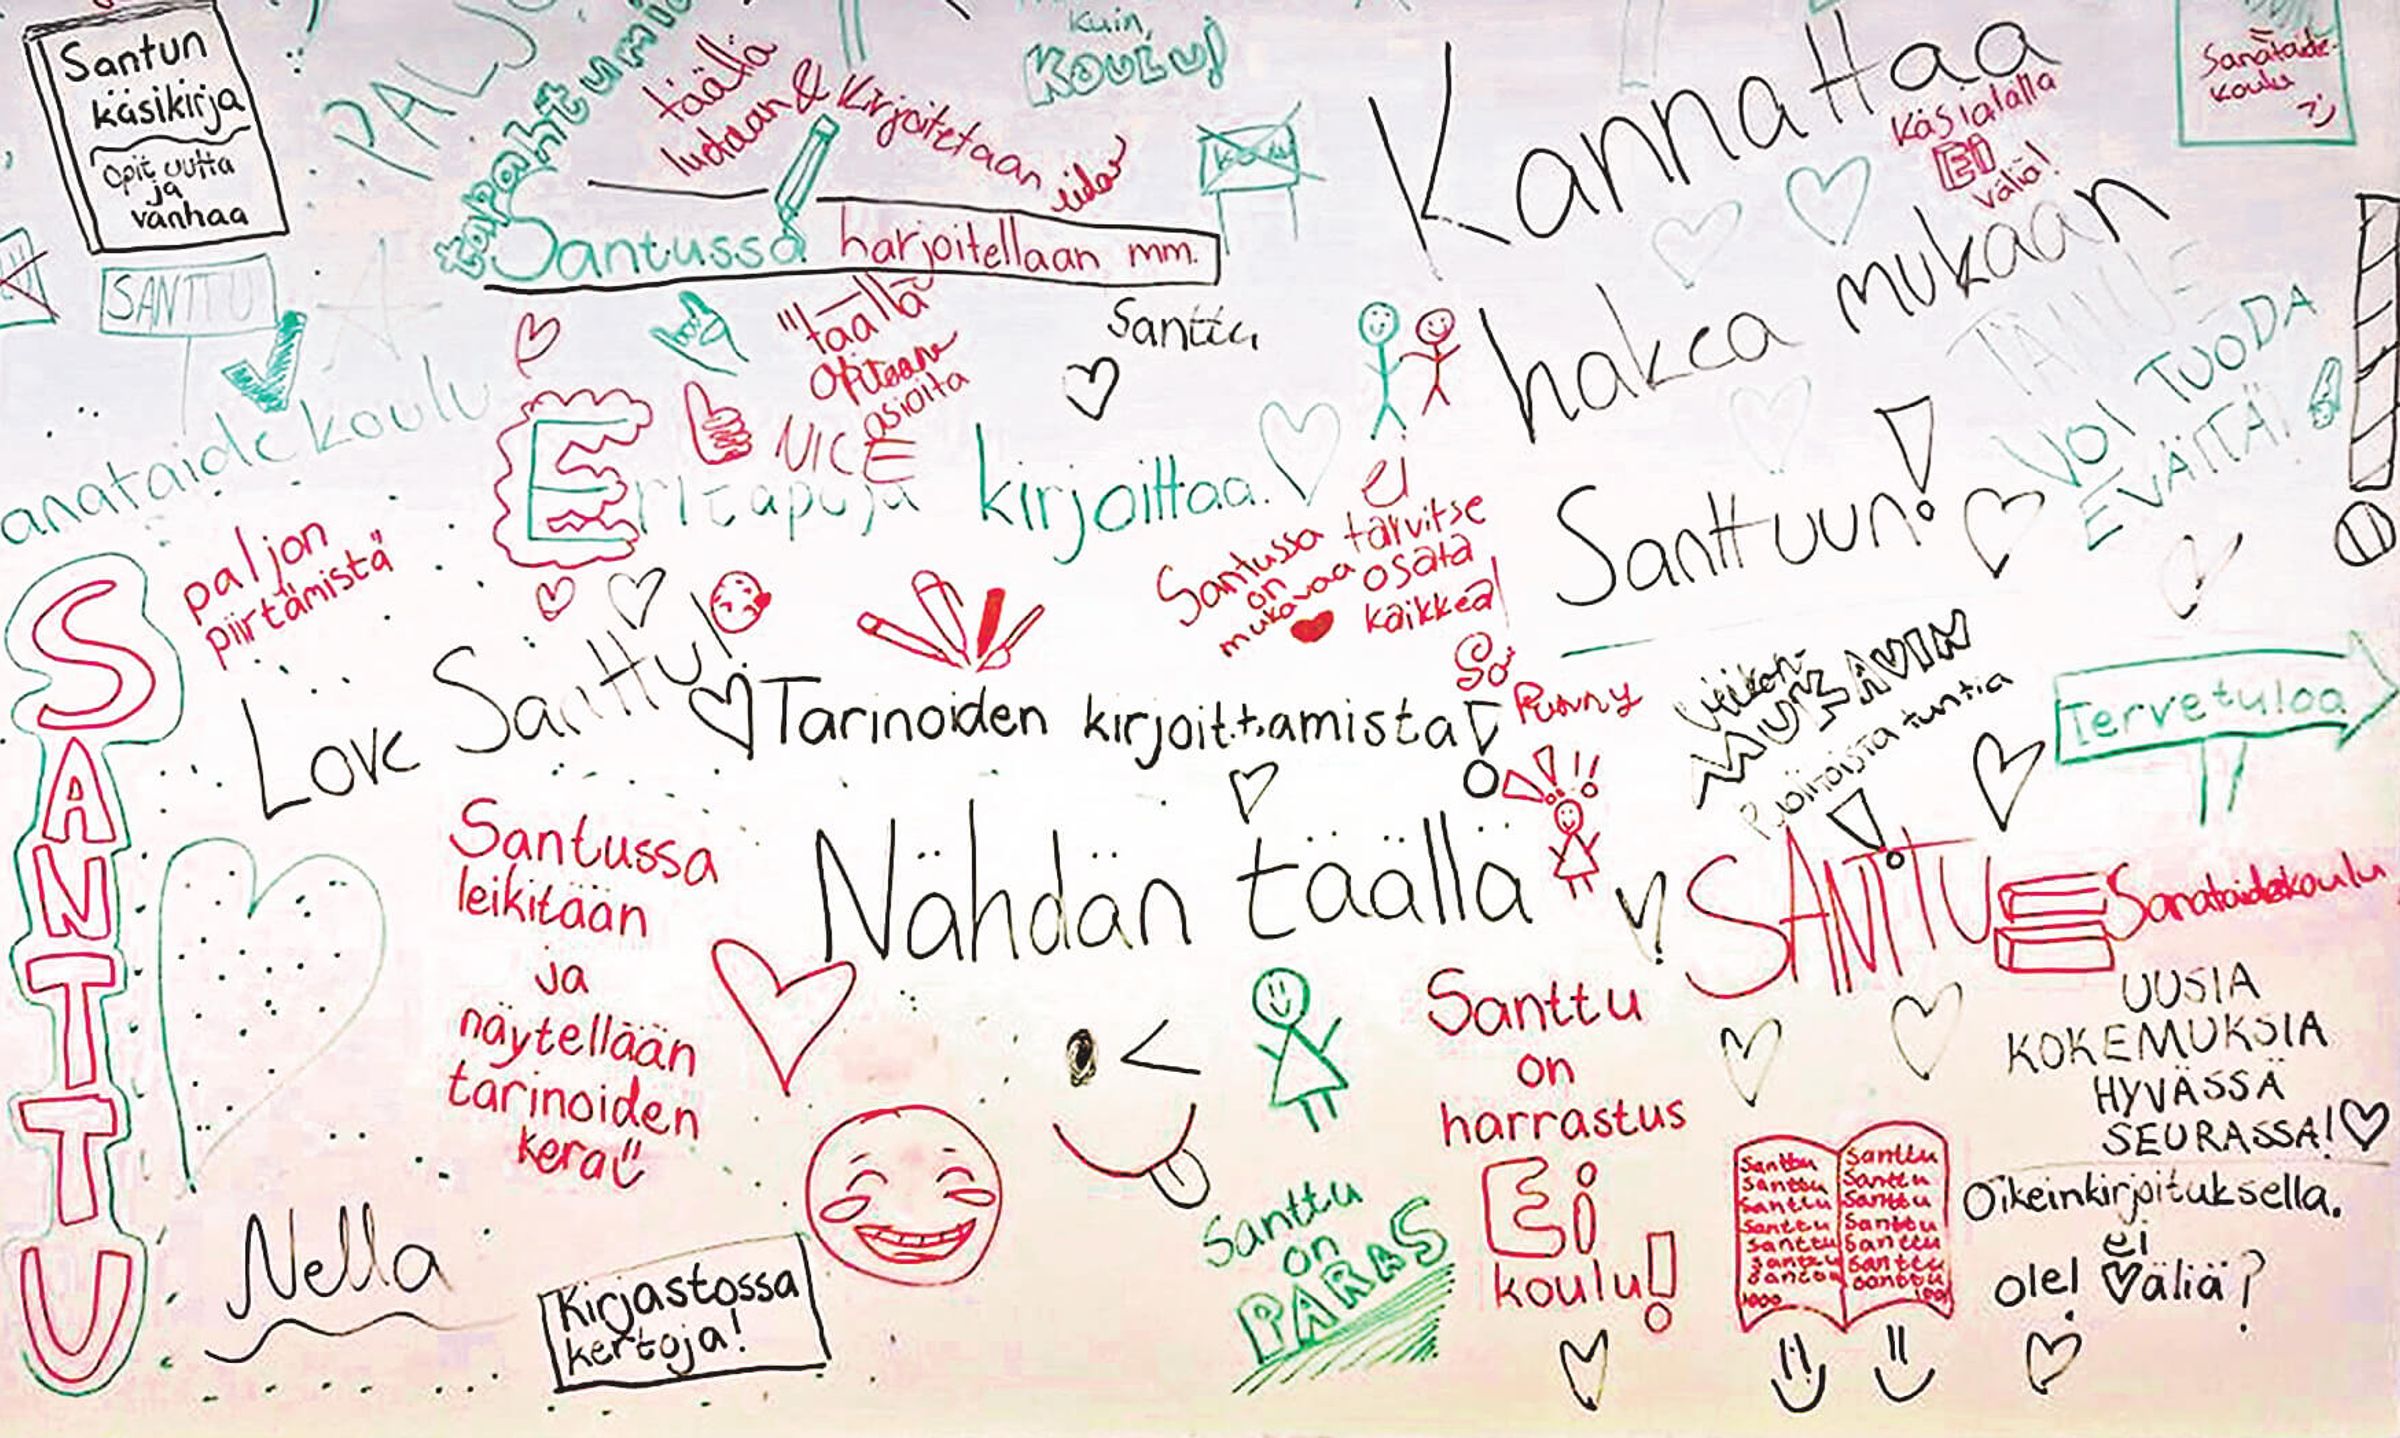 Santun
käsikirja
opit uutta
ja
vanhaa
PALJO
tapahtumia
täällä
luetaan & kirjoitetaan
kuin,
KOULU!
Santussa harjoitellaan mm.
Kannattaa
hakea mukaan
Santtuun!
käsialalla
Ei
väliä!
Sanataide-
koulu
:)
SANTTU
anataidekoulu
"täällä
opitaan
asioita
NICE
Santtu
Eritapoja kirjoittaa.
VOI TUODA
EVÄITÄ!
paljon
piirtämistä"
Santussa
on
mukavaa
ei
tarvitse
osata
kaikkea!
Love Santtu!
Tarinoiden kirjoittamista!
So
Funny
!!!
viikon
MUKAVIN
puolitoista tuntia
!
Tervetuloa
SANTTU
Santussa
leikitään
ja
näytellään
tarinoiden
kera
Nähdän täällä
SANTTU = Sanataidekoulu
Santtu
on
harrastus
Ei
koulu!
UUSIA
KOKEMUKSIA
HYVÄSSÄ
SEURASSA!
Oikeinkirjoituksella.
ei
ole! väliä?
Santtu
on
PARAS
Santtu Santtu
Santtu Santtu
Santtu Santtu
Santtu Santtu
Santtu Santtu
Santtu Santtu
Santtu Santtu
1000
Nella
Kirjastossa
kertoja!